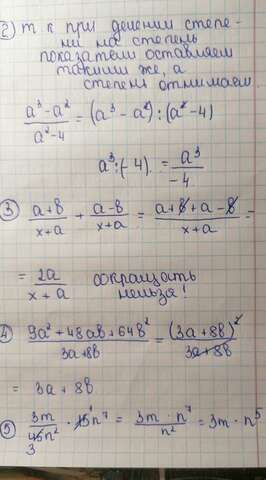 ② т к при делении степе-
ни на степень
показатели оставляем
такими же, а
степень отнимаем.
(a³ - a²)/(a² - 4) = (a³ - a²) : (a² - 4)
a³ : (-4) = a³/-4
③ (a+b)/(x+a) + (a-b)/(x+a) = (a+b+a-b)/(x+a) =
= 2a/(x+a) сокращать
нельзя!
④ (9a² + 48ab + 64b²)/(3a+8b) = (3a+8b)²/(3a+8b)
= 3a + 8b
⑤ 3m/(45n²) · 15n⁷ = (3m · n⁷)/n² = 3m · n⁵
3